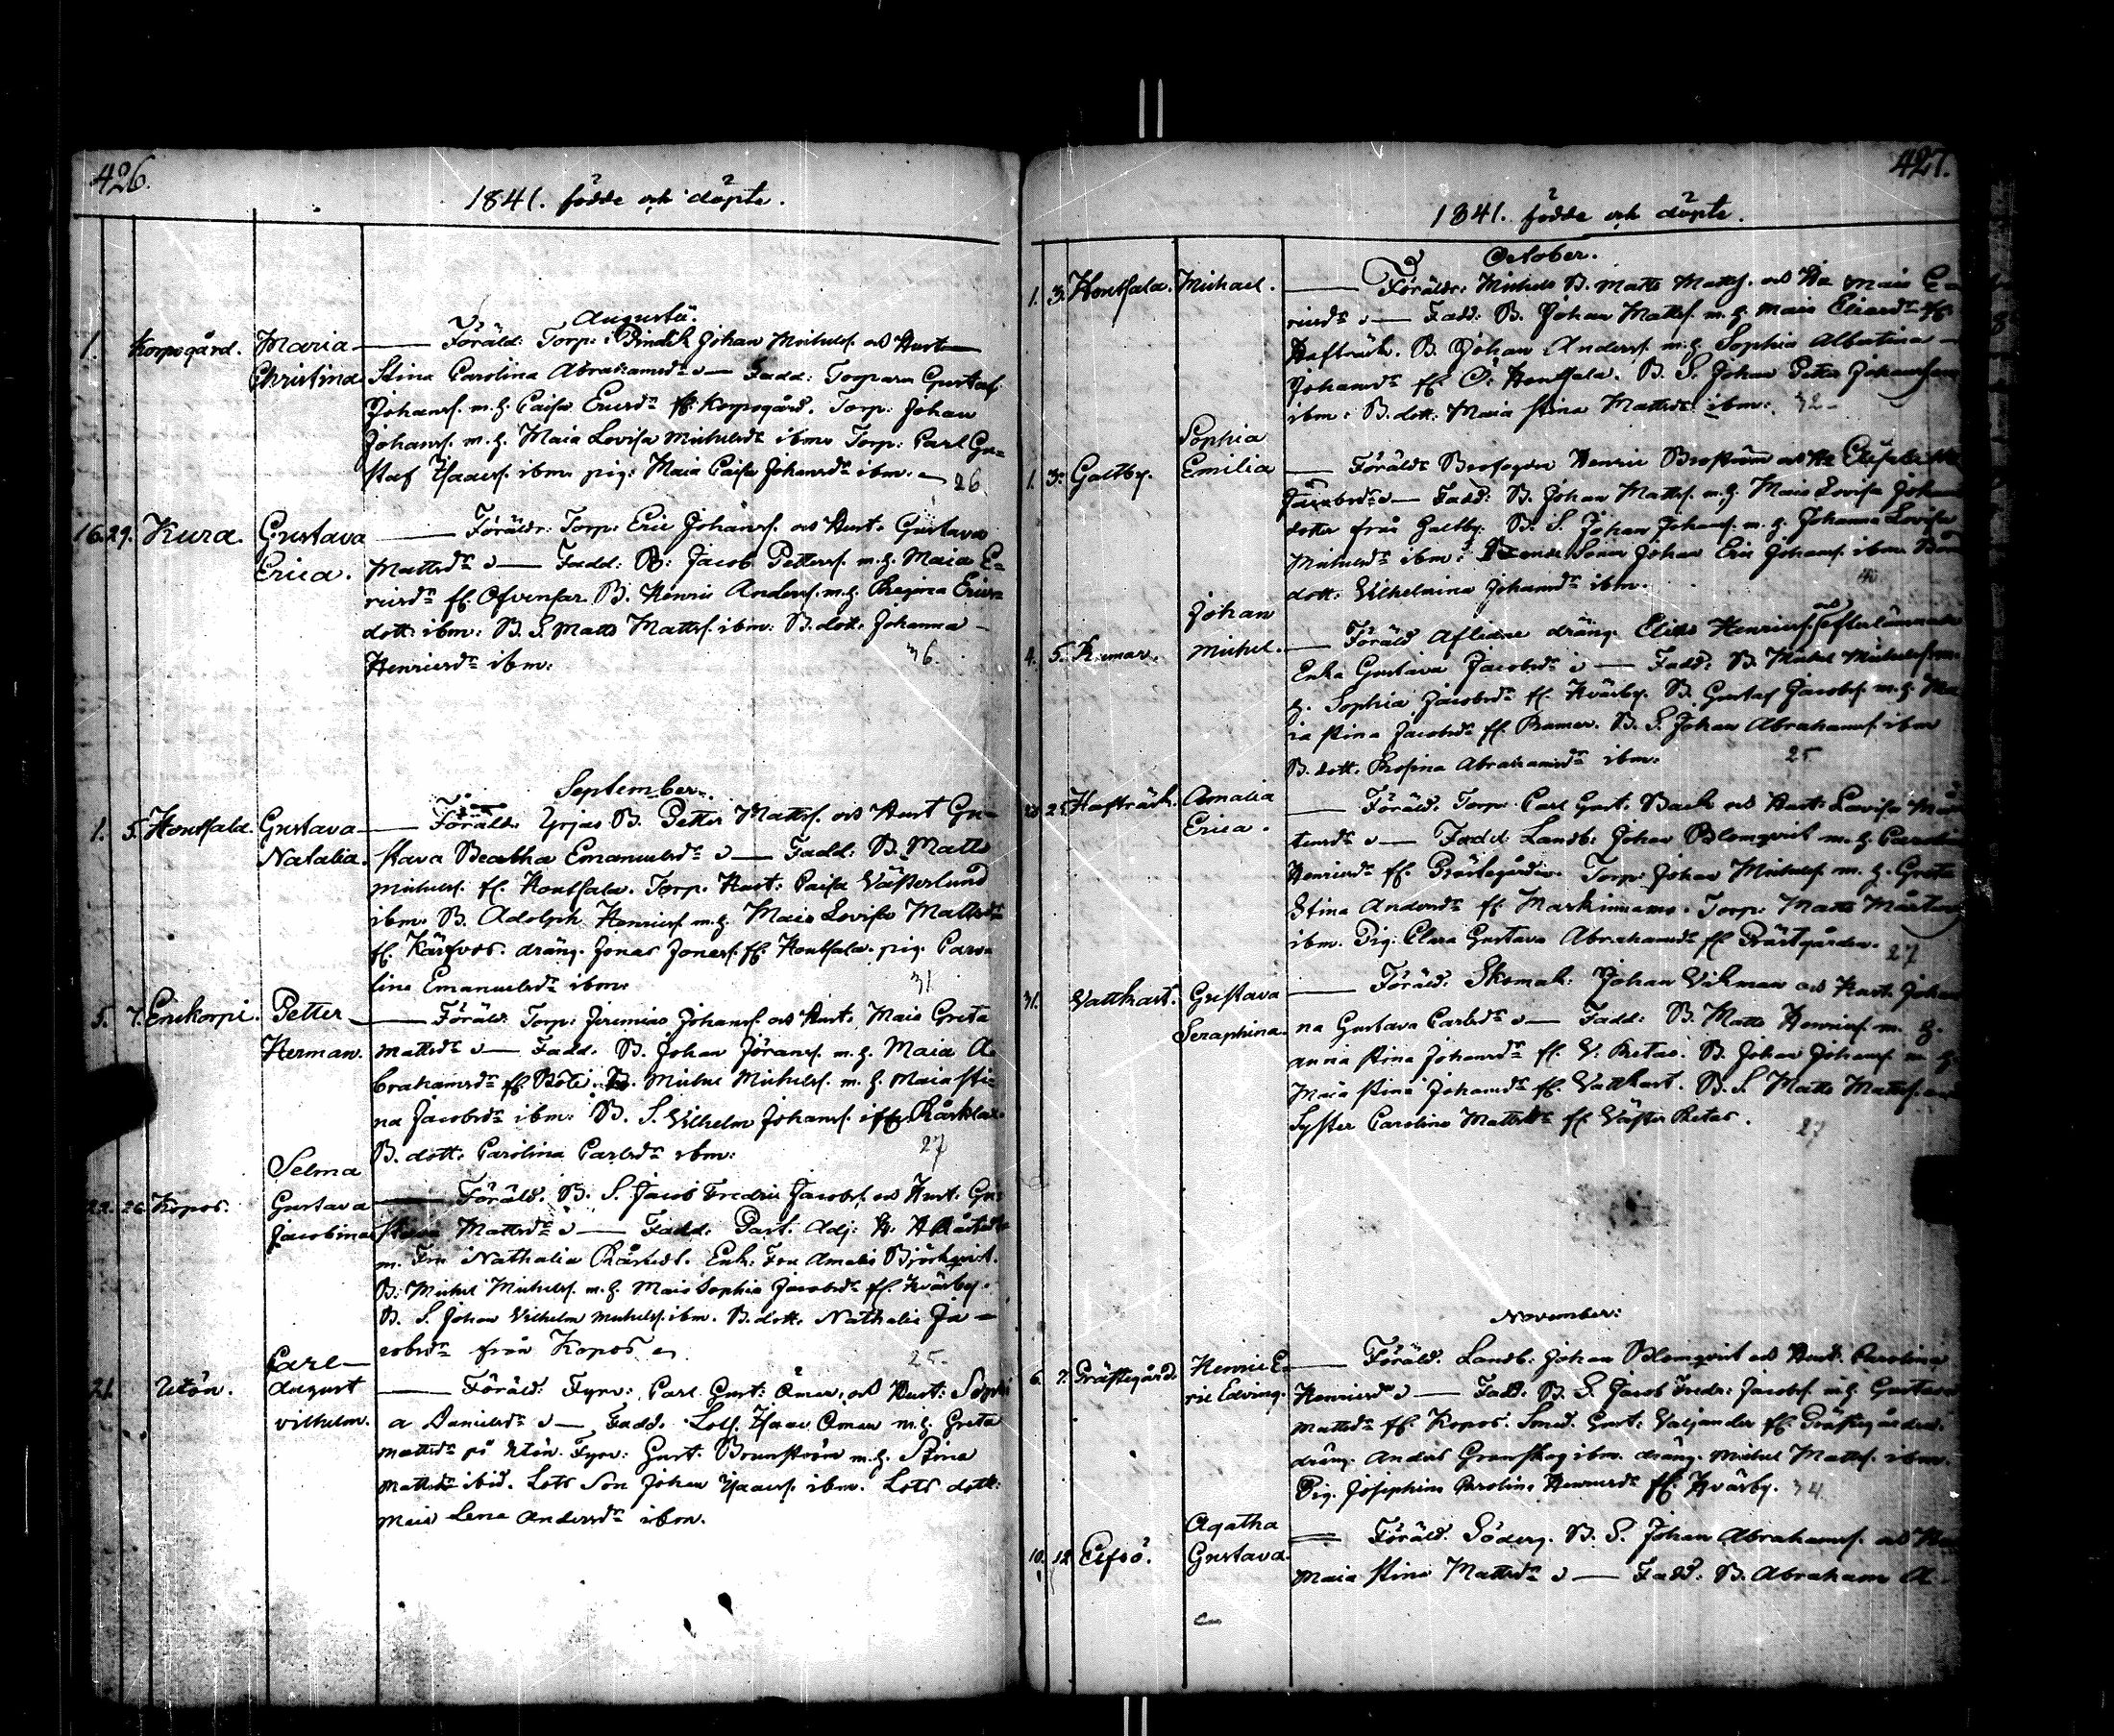 426.
1841. födde och döpte.
Augusti.
1. Korpogård. Maria — Föräld: Torp: Johan Michelss. och Hust
Christina Stina Carolina Abrahamsdr — Fadd: Torparn Gustaf
Johanss. m.h. Caisa Ericsdr fr. Korpogård. Torp: Johan
Johanss. m.h. Maia Lovisa Michelsdr ibm. Torp: Carl Gu=
staf Isaacss. ibm. pig: Maia Caisa Johansdr ibm. 26.
16. 29. Kura. Gustava — Föräldr: Torp: Eric Johanss. och Hust: Gustava
Erica. Mattsdr — Fadd: B: Jacob Petterss. m.h. Maia E=
ricsdr fr. Ofvensar. B. Henric Anderss. m.h. Regina Erics
dott: ibm: B. S. Matts Mattss. ibm: B. dott: Johanna —
Henricsdr ibm: 36.
September.
1. 5. Hontsala. Gustava — Föräld: B. Petter Mattss. och Hust Gu=
Natalia. stava Beatha Emanuelsdr — Fadd: B. Matts
Michelss. fr. Hontsala. Torp. Hust: Caisa Västerlund
ibm. B. Adolph Henricss. m.h. Maia Lovisa Mattsdr
fr. Kärfvos. dräng. Jonas Jonass. fr. Hontsala. pig. Caro=
lina Emanuelsdr ibm: 31
5. 7. Petter — Föräld: Torp: Jeremias Johanss. och Hust: Maia Greta
Herman. Mattsdr — Fadd. B. Johan Jöranss. m.h. Maia A=
brahamsdr fr. B. Michel Michelss. m.h. Maia Sti=
na Jacobsdr ibm: B. S. Vilhelm Johanss. fr.
B. dott: Carolina Carlsdr ibm: 27
Selma
22. 26. Kopos. Gustava — Föräld. B. S. Jacob Fredric Jacobss. och Hust: Gu=
Jacobina stava Mattsdr — Fadd: Past. Adj: H.
m. Fru Nathalia Enk. Fru Amalia Björkqvist.
B. Michel Michelss. m.h. Maia Sophia Jacobsdr fr. Kvärby.
B. S. Johan Vilhelm Michelss. ibm. B. dott: Nathalia Ja=
cobsdr från Kopos 25.
Carl
21. Utön. August — Föräld: Fyrv: Carl Gust: Öman och Hust: Sophi
Vilhelm. a Danielsdr — Fadd: Lots. Isaac Öman m.h. Greta
Mattsdr på Utön. Fyrv: Gust. Brunström m.h. Stina
Mattsdr ibid. Lots Son Johan Isaacss. ibm. Lots dott:
Maia Lena Andersdr ibm.
427.
1841. födde och döpte.
October.
1. 3. Hontsala. Michael. — Föräldr: Michels B. Matts Mattss. och Maia E=
ricsdr — Fadd: B. Johan Mattss. m.h. Maia Eliaedr fr.
Hafträsk. B. Johan Anderss. m.h. Sophia Albertina —
Johansdr fr. Ö. Hontsala. B. S. Johan Petter Johansson
ibm: B. dott: Maia Stina Mattsdr ibm: 32.
Sophia
1. 3. Galtby. Emilia — Föräldr Henric Broström
Jacobsdr — Fadd: B. Johan Mattss. m.h. Maia Lovisa Johans
dotter från Galtby. B. S. Johan Johanss. m.h. Johanna Lovisa
Michelsdr ibm: Bonde Sonen Johan Eric Johanss. ibm. Bon
dott: Vilhelmina Johansdr ibm.
Johan
4. 5. Rumar. Michel. — Föräld Aflidne dräng. Elias Henricss. och efterlämnade
Enka Gustava Jacobsdr — Fadd: B. Michel Michelss. m.
h. Sophia Jacobsdr fr. Kvärby. B. Gustaf Jacobss. m.h. Ma
ria Stina Jacobsdr fr. Rumar. B. S. Johan Abrahamss. ibm
B. dott: Rosina Abrahamsdr ibm. 25
25. Hafträsk. Amalia — Föräld: Torp: Carl Gust. Back och Hust: Lovisa Mår
Erica. tensdr — Fadd Landb: Johan Blomqvist m.h. Carolina
Henricsdr fr. Prästegården. Torp: Johan Michelss. m.h. Greta
Stina Andersdr fr. Markinnamo. Torp: Matts Mårtens
ibm. Pig: Clara Gustava Abrahamsdr fr. Prästgården. 27
31. Vattkast. Gustava — Föräld: Skomak: Johan Vikman och Hust: Johan
Seraphina. na Gustava Carlsdr — Fadd: B. Matts Henricss. m. h.
Anna Stina Johansdr fr. V. Retais. B. Johan Johanss. m. h.
Maia Stina Johansdr fr. Vattkast. B. S. Matts Mattss. och
Syster Carolina Mattsdr fr. Väster Retais. 27
November:
6. 7. Prästegård. Henric E= — Föräld. Landb: Johan Blomqvist och Hust. Carolina
ric Edving. Henricsdr — Fadd. B. S. Jacob Fredr: Jacobss. m.h. Gustava
Mattsdr fr. Kopos. Smed. Gust: Valjander fr. Prästegården.
dräng. Anders Granskog ibm. dräng. Michel Mattss. ibm.
Pig. Josephina Carolina Henricsdr fr. Kvärby. 34.
Agatha
10. 12 Elfsö. Gustava. — Föräld. Söderg. B. S. Johan Abrahamss. och Hu
Maia Stina Mattsdr — Fadd: B. Abraham A